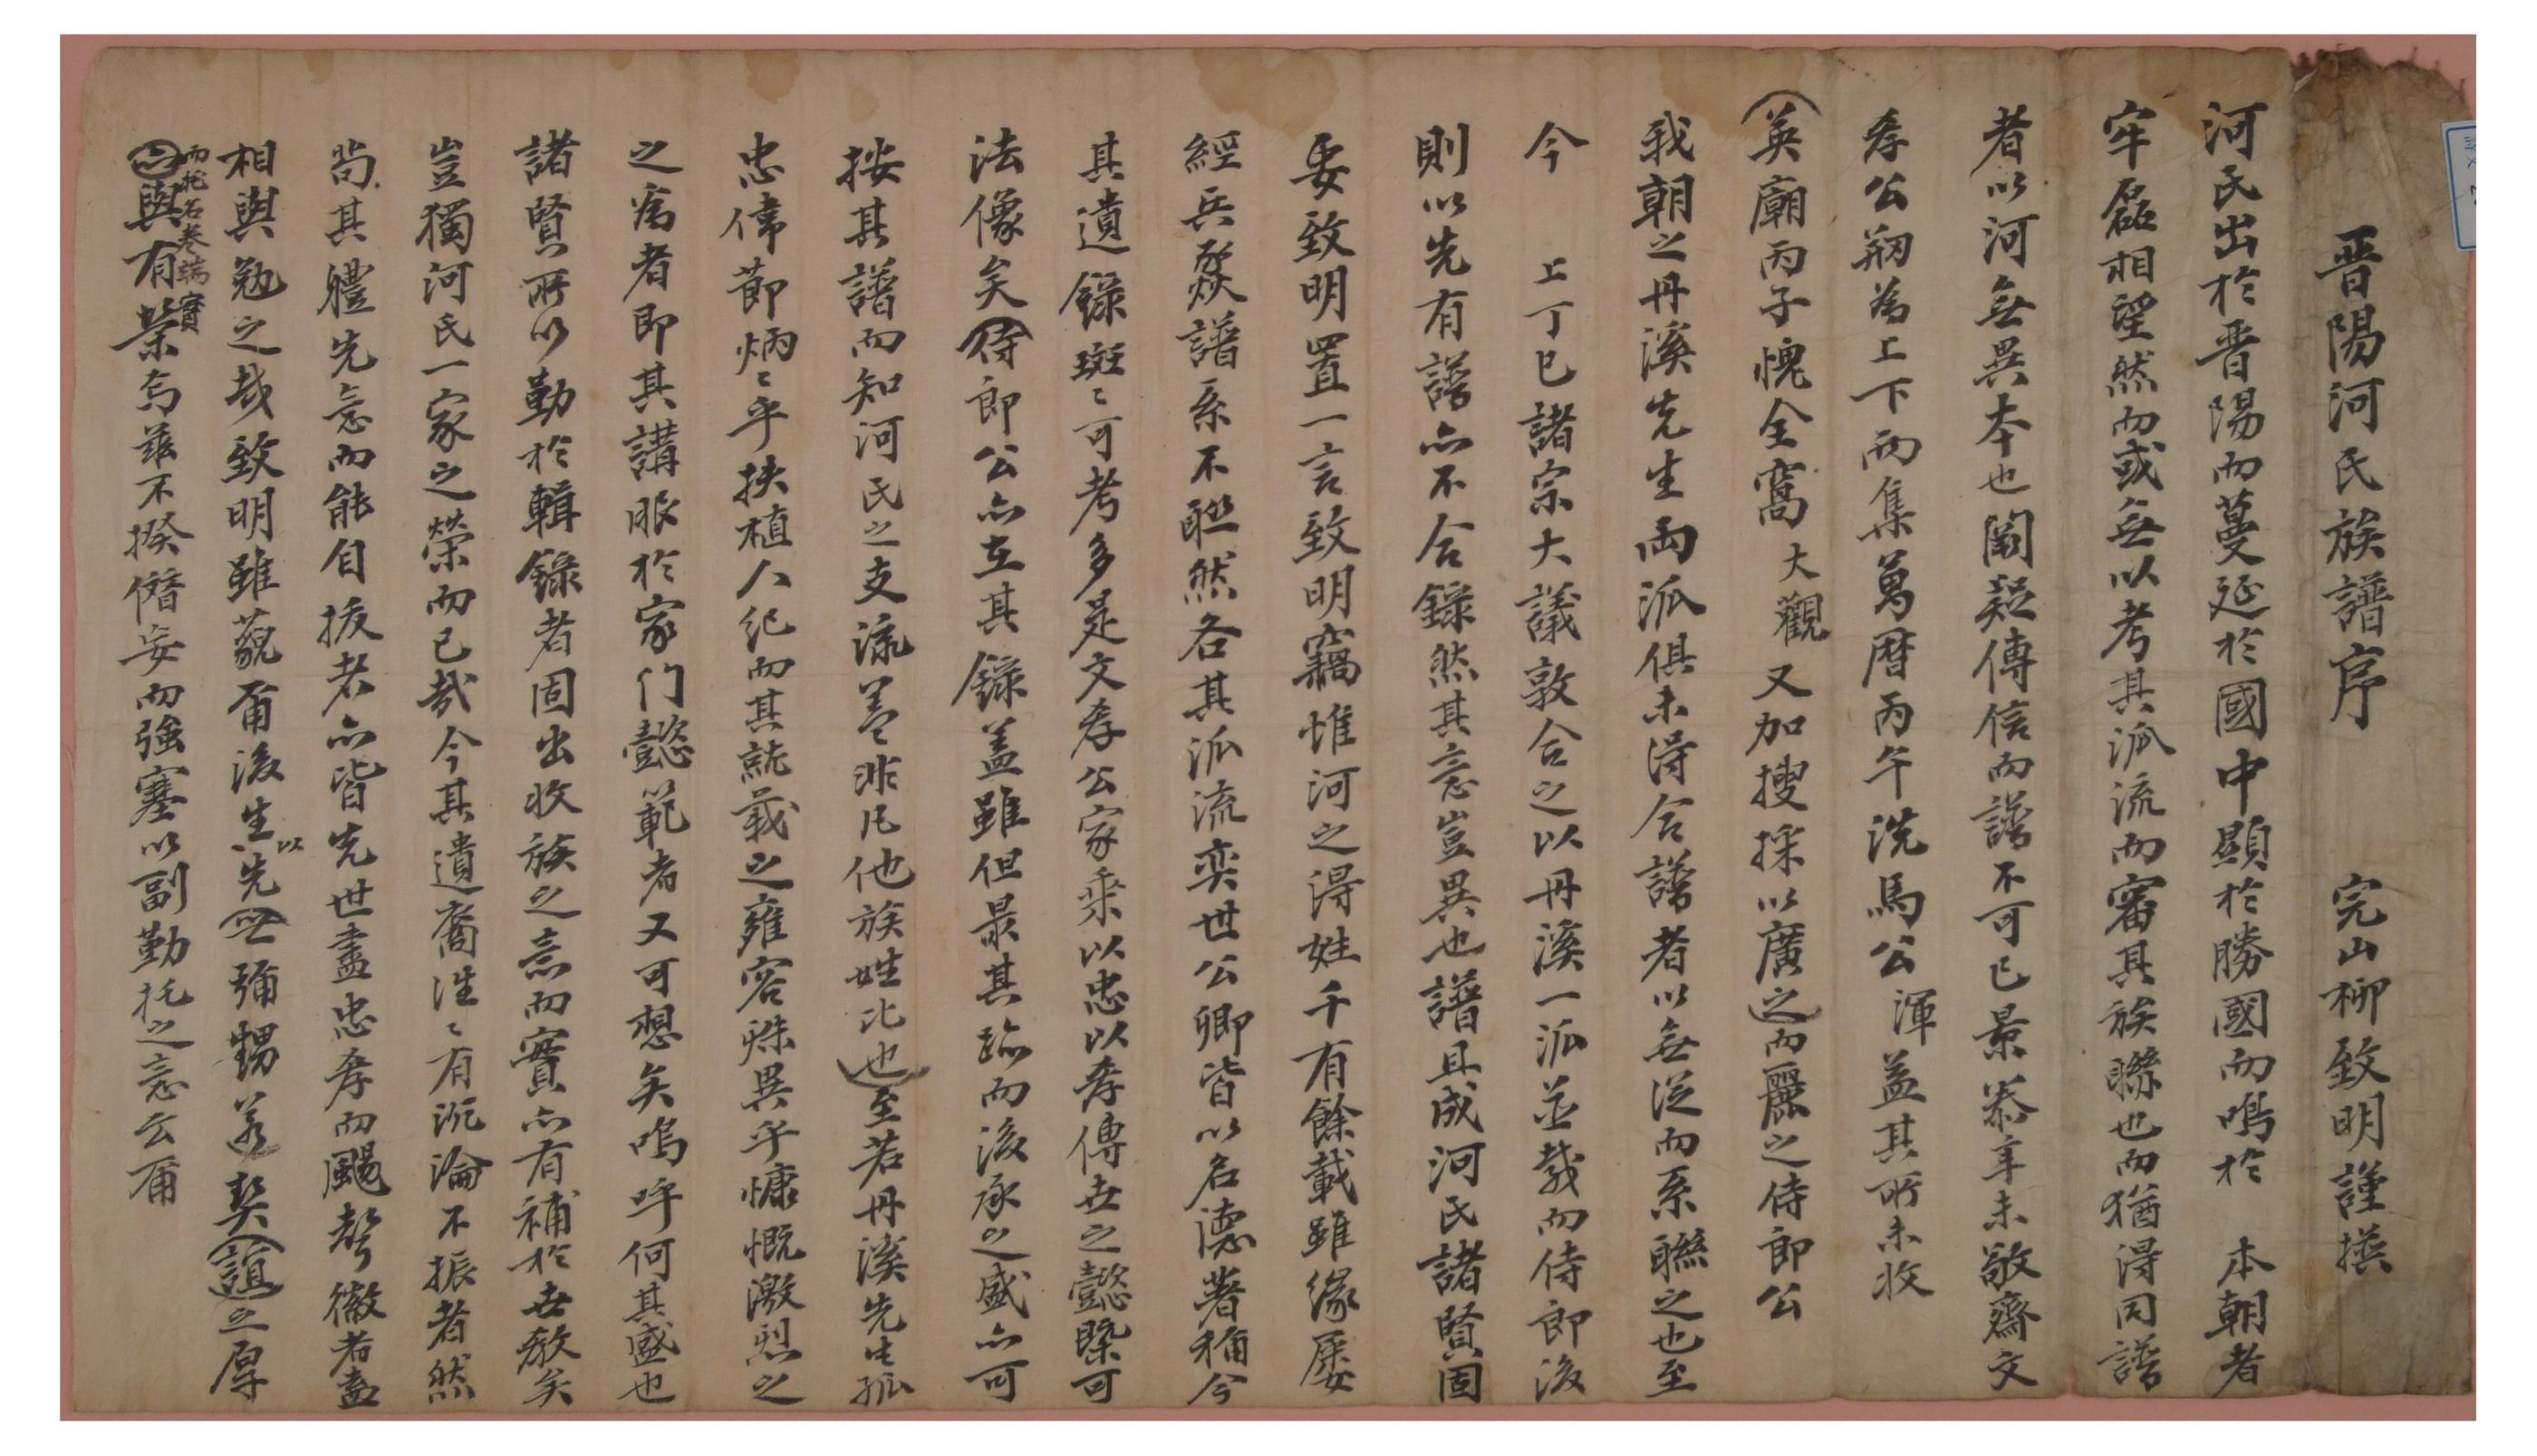 晋陽河氏族譜序 完山柳致明謹撰
河氏出於晋陽而蔓延於國中顯於勝國而鳴於 本朝者
牢磊相望然而或無以考其派流而審其族聯也而猶得同譜
者以河無異本也闕疑傳信而譜不可已景泰辛未敬齋文
孝公剏爲上下兩集萬曆丙午洗馬公 渾 盖其所未收
英廟丙子愧全窩 大觀 又加搜採以廣之而麗之侍郎公
我朝之丹溪先生兩派俱未得合譜者以無從而系聯之也至
今 上丁巳諸宗大議敦合之以丹溪一派並載而侍郎後
則以先有譜亦不合錄然其意豈異也譜且成河氏諸賢固
要致明置一言致明竊惟河之得姓千有餘載雖緣屡
經兵燹譜系不聀然各其派流奕世公卿皆以名德著稱今
其遺錄斑〻可考多是文孝公家乘以忠以孝傳世之懿槩可
法像矣侍郎公亦立其錄盖雖但最其跡而後承之盛亦可
按其譜而知河氏之支流盖非凡他族姓比也至若丹溪先生孤
忠偉節炳〻乎扶植人紀而其誌載之雍容殊異乎慷慨激烈之
之爲者即其講服於家门懿範者又可想矣嗚呼何其盛也
諸賢所以勤於輯錄者固出收族之意而實亦有補於世教矣
豈獨河氏一家之榮而已哉今其遺裔往〻有沉淪不振者然
尚其軆先意而能自拔者亦皆先世盡忠孝而颺聲徽者盍
相與勉之哉致明雖藐爾後生以先世彌甥義契誼之厚
而托名卷端實
亦與有榮焉玆不揆僭妄而強塞以副勤托之意云爾